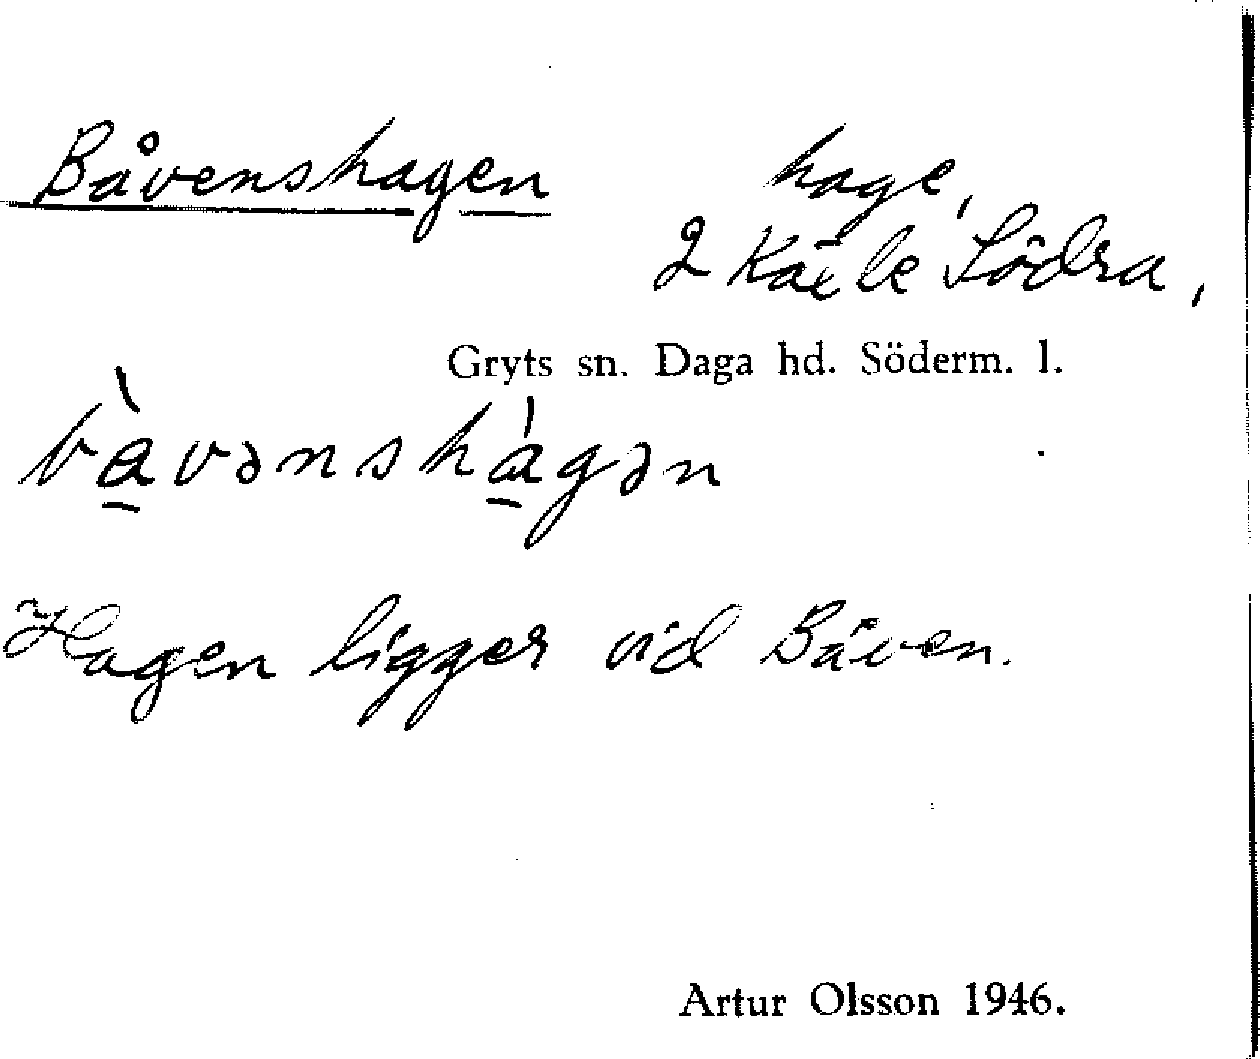 Båvenshagen
hage,
2 Södra,
Gryts sn. Daga hd. Söderm. l.
bàvənshágən
Hagen ligger vid Båven.
Artur Olsson 1946.